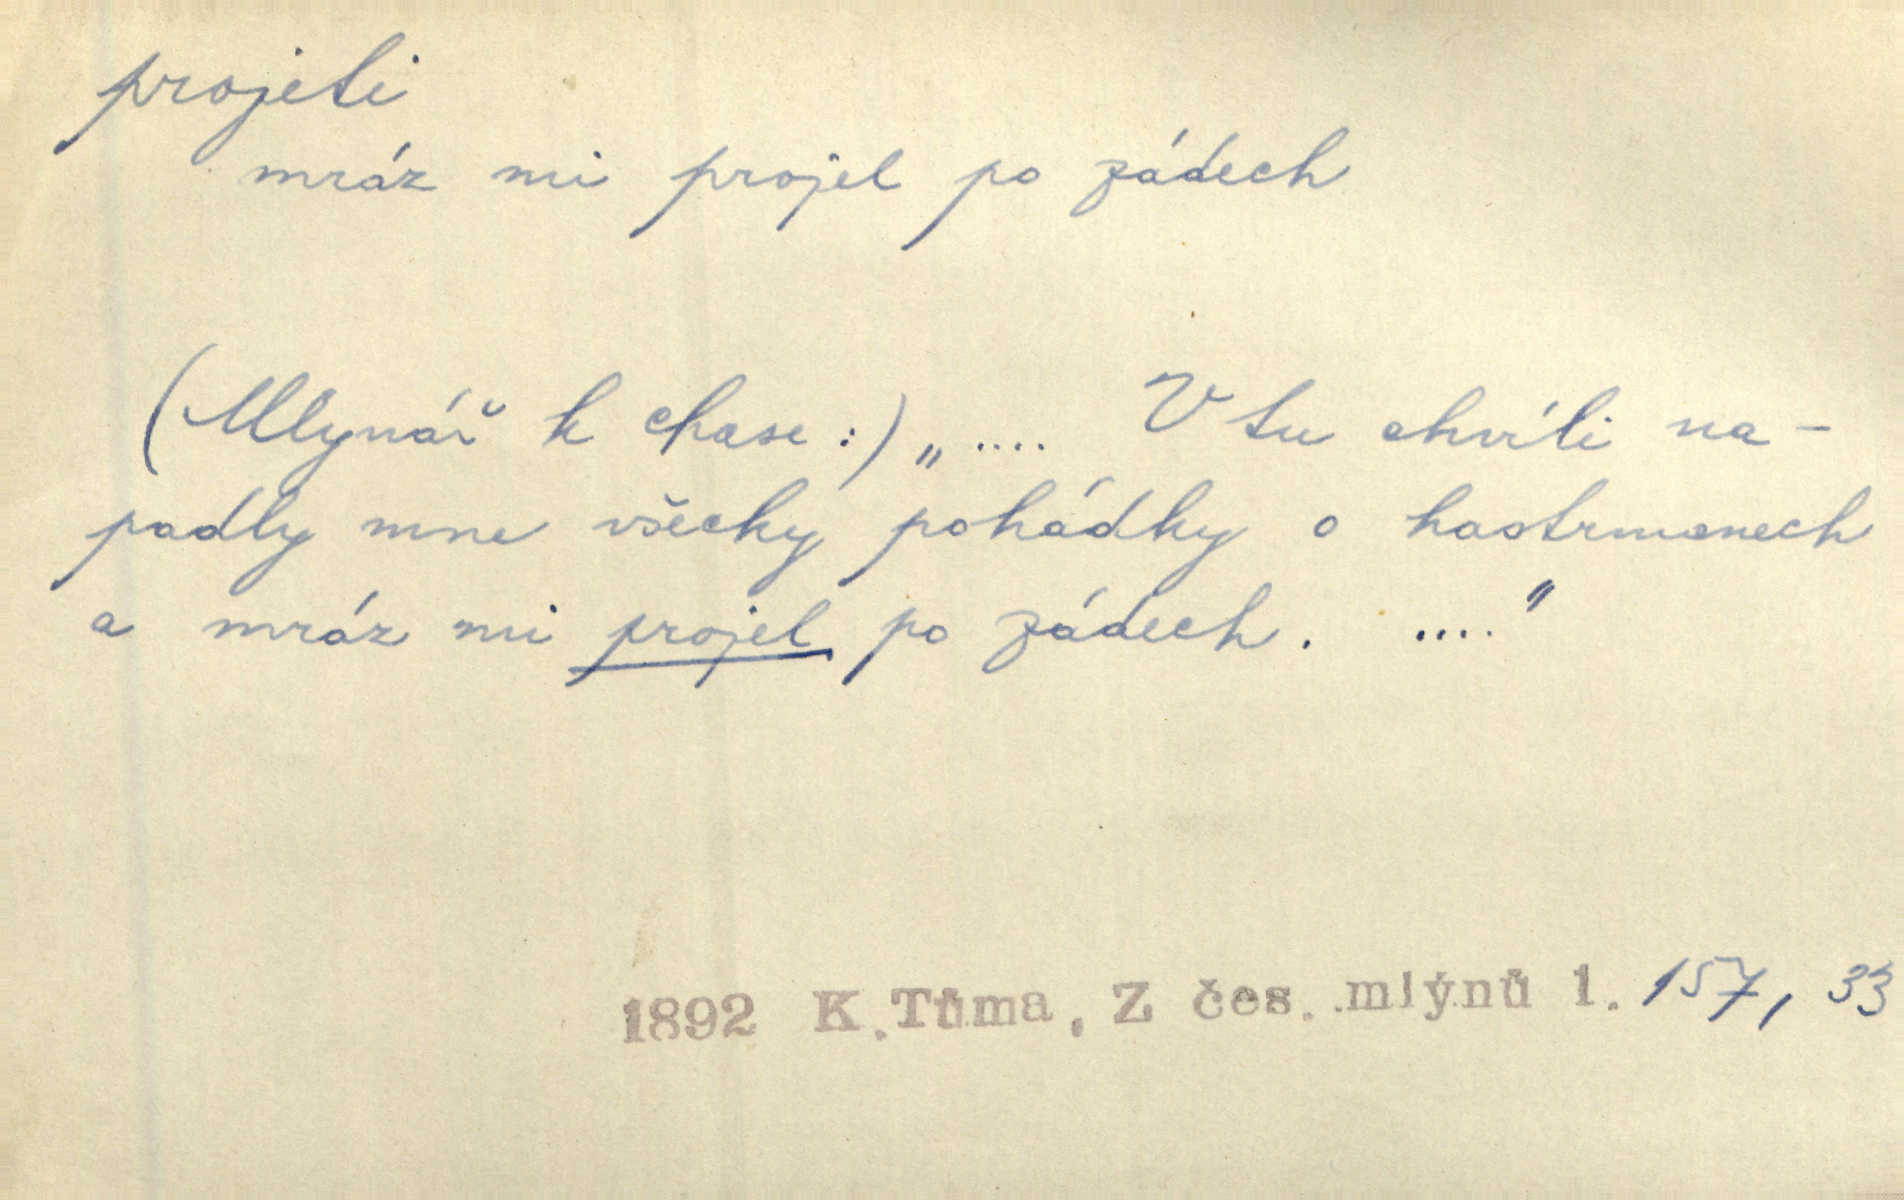 projeti
mráz mi projel po zádech
(Mlynář k chase:) „.... V tu chvíli na-
padly mne všecky pohádky o hastrmanech
a mráz mi projel po zádech. ...."
1892 K.Tůma, Z čes. mlýnů 1. 157, 33